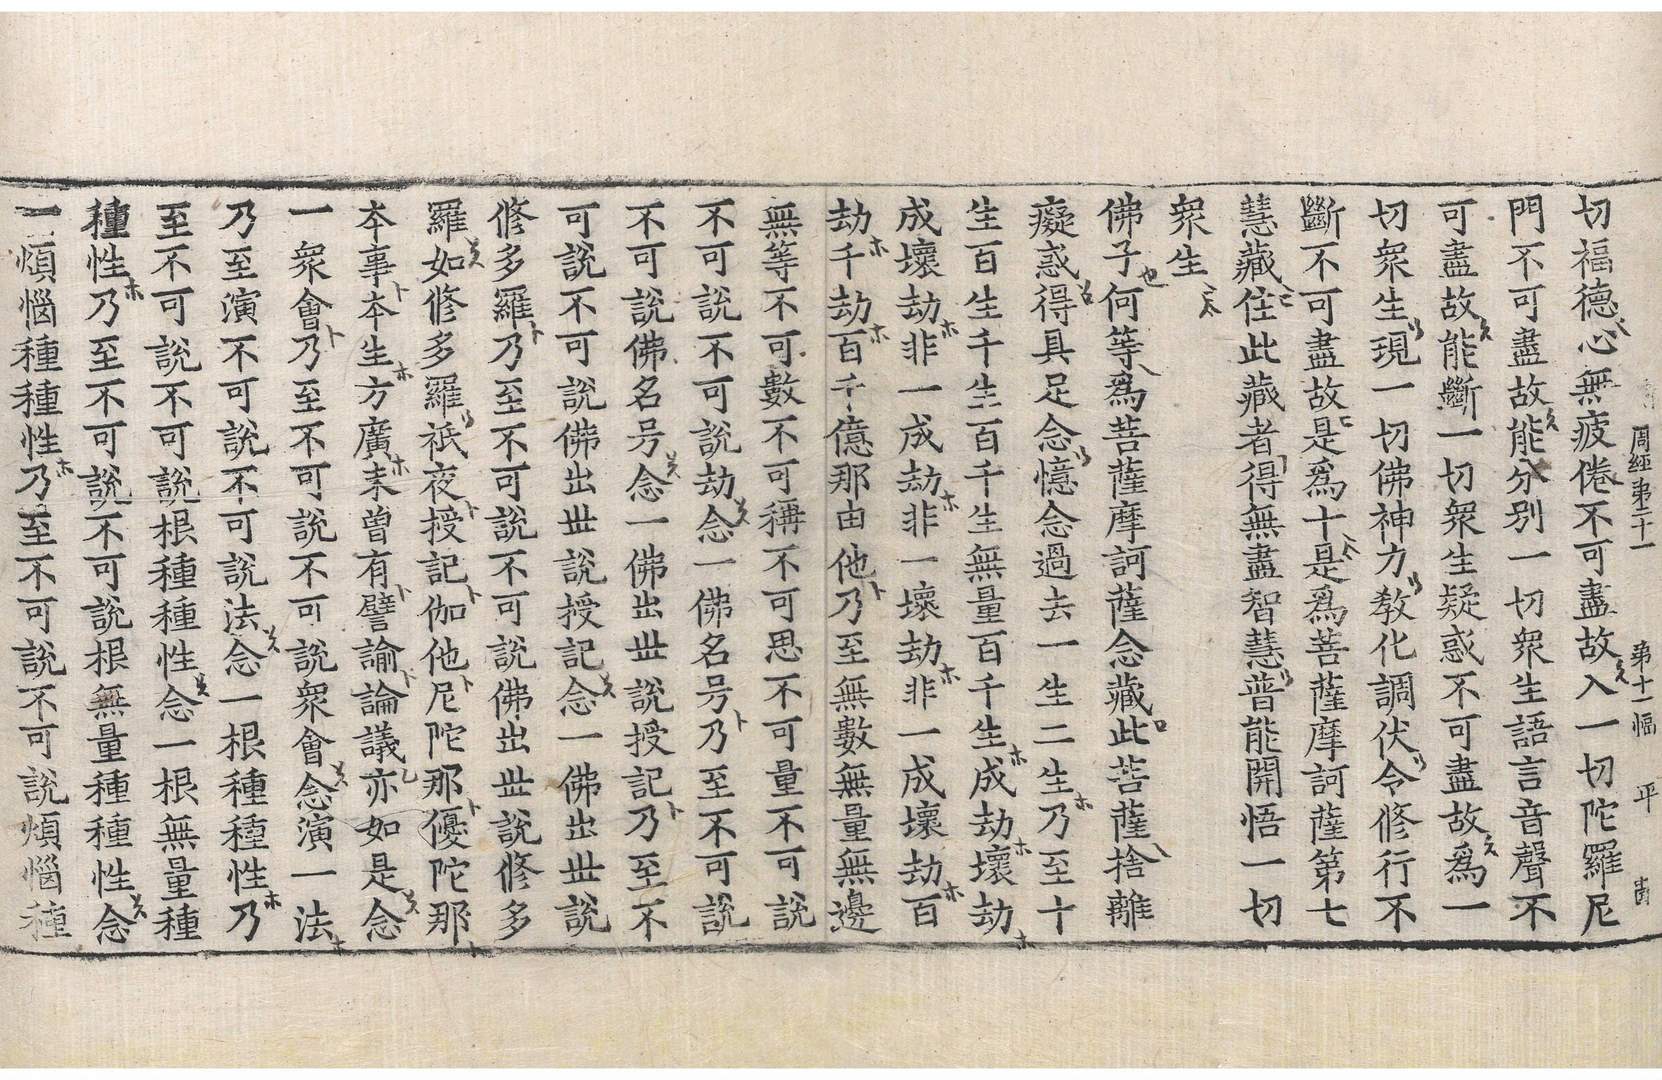 切福德心無疲倦不可盡故入一切陀羅尼
門不可盡故能分別一切衆生語言音聲不
可盡故能斷一切衆生疑惑不可盡故爲一
切衆生現一切佛神力教化調伏令修行不
斷不可盡故是爲十是爲菩薩摩訶薩第七
慧藏住此藏者得無盡智慧普能開悟一切
衆生
佛子何等爲菩薩摩訶薩念藏此菩薩捨離
癡惑得具足念憶念過去一生二生乃至十
生百生千生百千生無量百千生成劫壞劫
成壞劫非一成劫非一壞劫非一成壞劫百
劫千劫百千億那由他乃至無數無量無邊
無等不可數不可稱不可思不可量不可說
不可說不可說劫念一佛名号乃至不可說
不可說佛名号念一佛出世說授記乃至不
可說不可說佛出世說授記念一佛出世說
修多羅乃至不可說不可說佛出世說修多
羅如修多羅祇夜授記伽他尼陀那優陀那
本事本生方廣未曾有譬論論議亦如是念
一衆會乃至不可說不可說衆會念演一法
乃至演不可說不可說法念一根種種性乃
至不可說不可說根種種性念一根無量種
種性乃至不可說不可說根無量種種性念
一煩惱種種性乃至不可說不可說煩惱種
周經第二十一 第十一幅 平